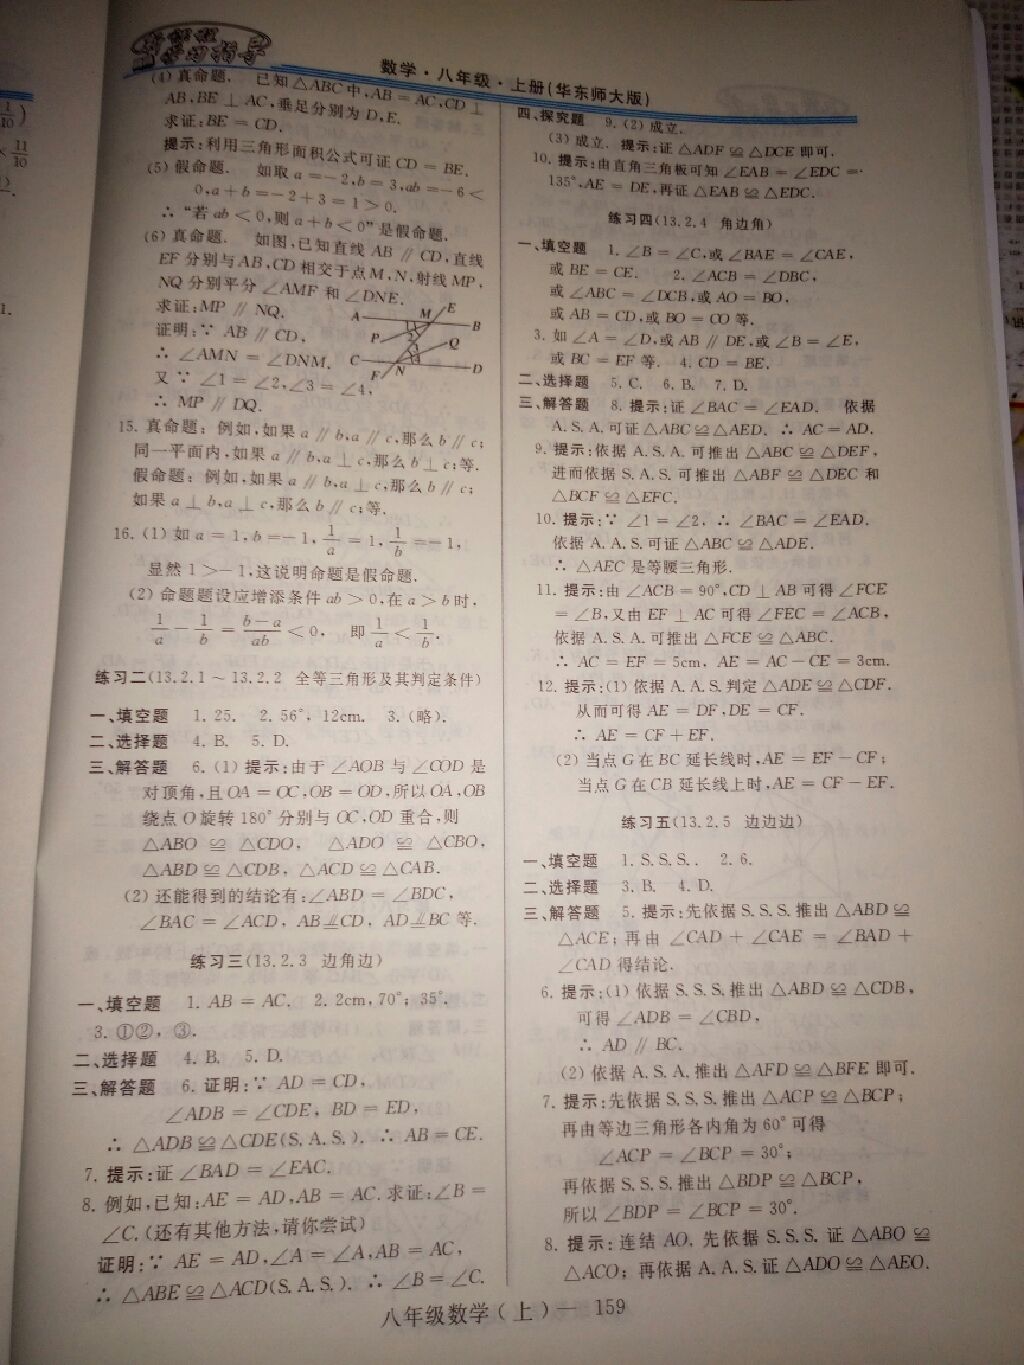 新课程
学习指导
数学·八年级·上册(华东师大版)
(4) 真命题. 已知△ABC中,AB = AC,CD⊥
AB,BE⊥AC,垂足分别为D,E.
求证:BE = CD.
提示:利用三角形面积公式可证CD = BE.
(5) 假命题. 如取a =−2,b = 3,ab =−6 <
0,a + b =−2 + 3 = 1 > 0.
∴ “若ab < 0,则a + b < 0”是假命题.
(6) 真命题. 如图,已知直线AB // CD,直线
EF分别与AB,CD相交于点M,N,射线MP,
NQ分别平分∠AMF和∠DNE.
求证:MP // NQ.
证明:∵ AB // CD,
∴ ∠AMN = ∠DNM.
又∵ ∠1 = ∠2,∠3 = ∠4,
∴ MP // DQ.
A M E B
P Q
C N D
F
15. 真命题: 例如,如果a // b,a // c,那么b // c;
同一平面内,如果a // b,a⊥c,那么b⊥c;等.
假命题: 例如,如果a // b,a⊥c,那么b // c;
如果a⊥b,a⊥c,那么b // c;等.
16. (1) 如a = 1,b =−1, 1/a = 1, 1/b =−1,
显然1 >−1,这说明命题是假命题.
(2) 命题题设应增添条件ab > 0,在a > b时,
1/a − 1/b = (b−a)/ab < 0, 即 1/a < 1/b.
练习二(13.2.1 ~ 13.2.2 全等三角形及其判定条件)
一、填空题 1. 25. 2. 56°, 12cm. 3. (略).
二、选择题 4. B. 5. D.
三、解答题 6. (1) 提示:由于∠AOB与∠COD是
对顶角,且OA = OC,OB = OD,所以OA,OB
绕点O旋转180°分别与OC,OD重合,则
△ABO ≌ △CDO, △ADO ≌ △CBO,
△ABD ≌ △CDB, △ACD ≌ △CAB.
(2) 还能得到的结论有:∠ABD = ∠BDC,
∠BAC = ∠ACD, AB∥CD, AD∥BC等.
练习三(13.2.3 边角边)
一、填空题 1. AB = AC. 2. 2cm,70°; 35°.
3. ①②, ③.
二、选择题 4. B. 5. D.
三、解答题 6. 证明:∵ AD = CD,
∠ADB = ∠CDE, BD = ED,
∴ △ADB ≌ △CDE(S. A. S. ). ∴ AB = CE.
7. 提示:证∠BAD = ∠EAC.
8. 例如,已知:AE = AD,AB = AC. 求证:∠B =
∠C. (还有其他方法,请你尝试)
证明:∵ AE = AD,∠A = ∠A,AB = AC,
∴ △ABE ≌ △ACD(S. A. S. ). ∴ ∠B = ∠C.
四、探究题 9. (2) 成立.
(3) 成立. 提示:证△ADF ≌ △DCE即可.
10. 提示:由直角三角板可知∠EAB = ∠EDC =
135°,AE = DE,再证△EAB ≌ △EDC.
练习四(13.2.4 角边角)
一、填空题 1. ∠B = ∠C,或∠BAE = ∠CAE,
或BE = CE. 2. ∠ACB = ∠DBC,
或∠ABC = ∠DCB,或AO = BO,
或AB = CD,或BO = CO等.
3. 如∠A = ∠D,或AB // DE,或∠B = ∠E,
或BC = EF等. 4. CD = BE.
二、选择题 5. C. 6. B. 7. D.
三、解答题 8. 提示:证∠BAC = ∠EAD. 依据
A. S. A. 可证△ABC ≌ △AED. ∴ AC = AD.
9. 提示:依据A. S. A. 可推出△ABC ≌ △DEF,
进而依据S. A. S. 可推出△ABF ≌ △DEC和
△BCF ≌ △EFC.
10. 提示:∵ ∠1 = ∠2, ∴ ∠BAC = ∠EAD.
依据A. A. S. 可证△ABC ≌ △ADE.
∴ △AEC是等腰三角形.
11. 提示:由∠ACB = 90°,CD⊥AB可得∠FCE
= ∠B,又由EF⊥AC可得∠FEC = ∠ACB,
依据A. S. A. 可推出△FCE ≌ △ABC.
∴ AC = EF = 5cm, AE = AC − CE = 3cm.
12. 提示:(1) 依据A. A. S. 判定△ADE ≌ △CDF.
从而可得AE = DF,DE = CF.
∴ AE = CF + EF.
(2) 当点G在BC延长线时,AE = EF − CF;
当点G在CB延长线上时,AE = CF − EF.
练习五(13.2.5 边边边)
一、填空题 1. S. S. S. . 2. 6.
二、选择题 3. B. 4. D.
三、解答题 5. 提示:先依据S. S. S. 推出△ABD ≌
△ACE; 再由∠CAD + ∠CAE = ∠BAD +
∠CAD得结论.
6. 提示:(1) 依据S. S. S. 推出△ABD ≌ △CDB,
可得∠ADB = ∠CBD,
∴ AD // BC.
(2) 依据A. S. A. 推出△AFD ≌ △BFE即可.
7. 提示:先依据S. S. S. 推出△ACP ≌ △BCP;
再由等边三角形各内角为60°可得
∠ACP = ∠BCP = 30°;
再依据S. S. S. 推出△BDP ≌ △BCP,
所以∠BDP = ∠BCP = 30°.
8. 提示: 连结AO, 先依据S. S. S. 证△ABO ≌
△ACO; 再依据A. A. S. 证△ADO ≌ △AEO.
八年级数学(上)— 159